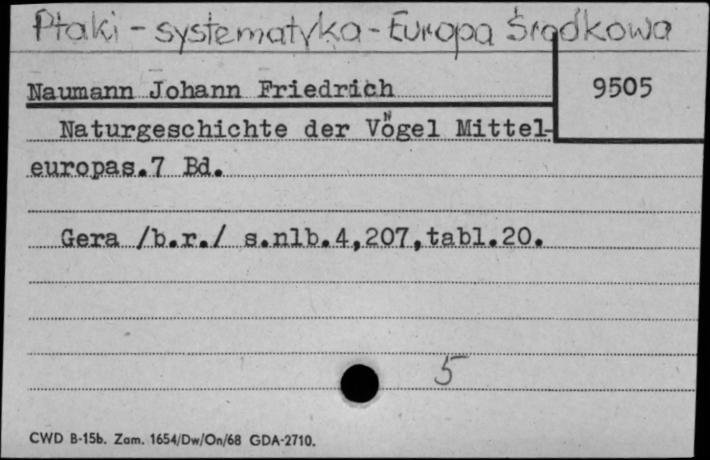 Ptaki - systematyka - Europa Środkowa
Naumann Johann Friedrich
9505
Naturgeschichte der Vögel Mittel-
europas.7 Bd.
Gera /b.r./ s.nlb.4,207,tabl.20.
5
CWD B-15b. Zam. 1654/Dw/On/68 GDA-2710.